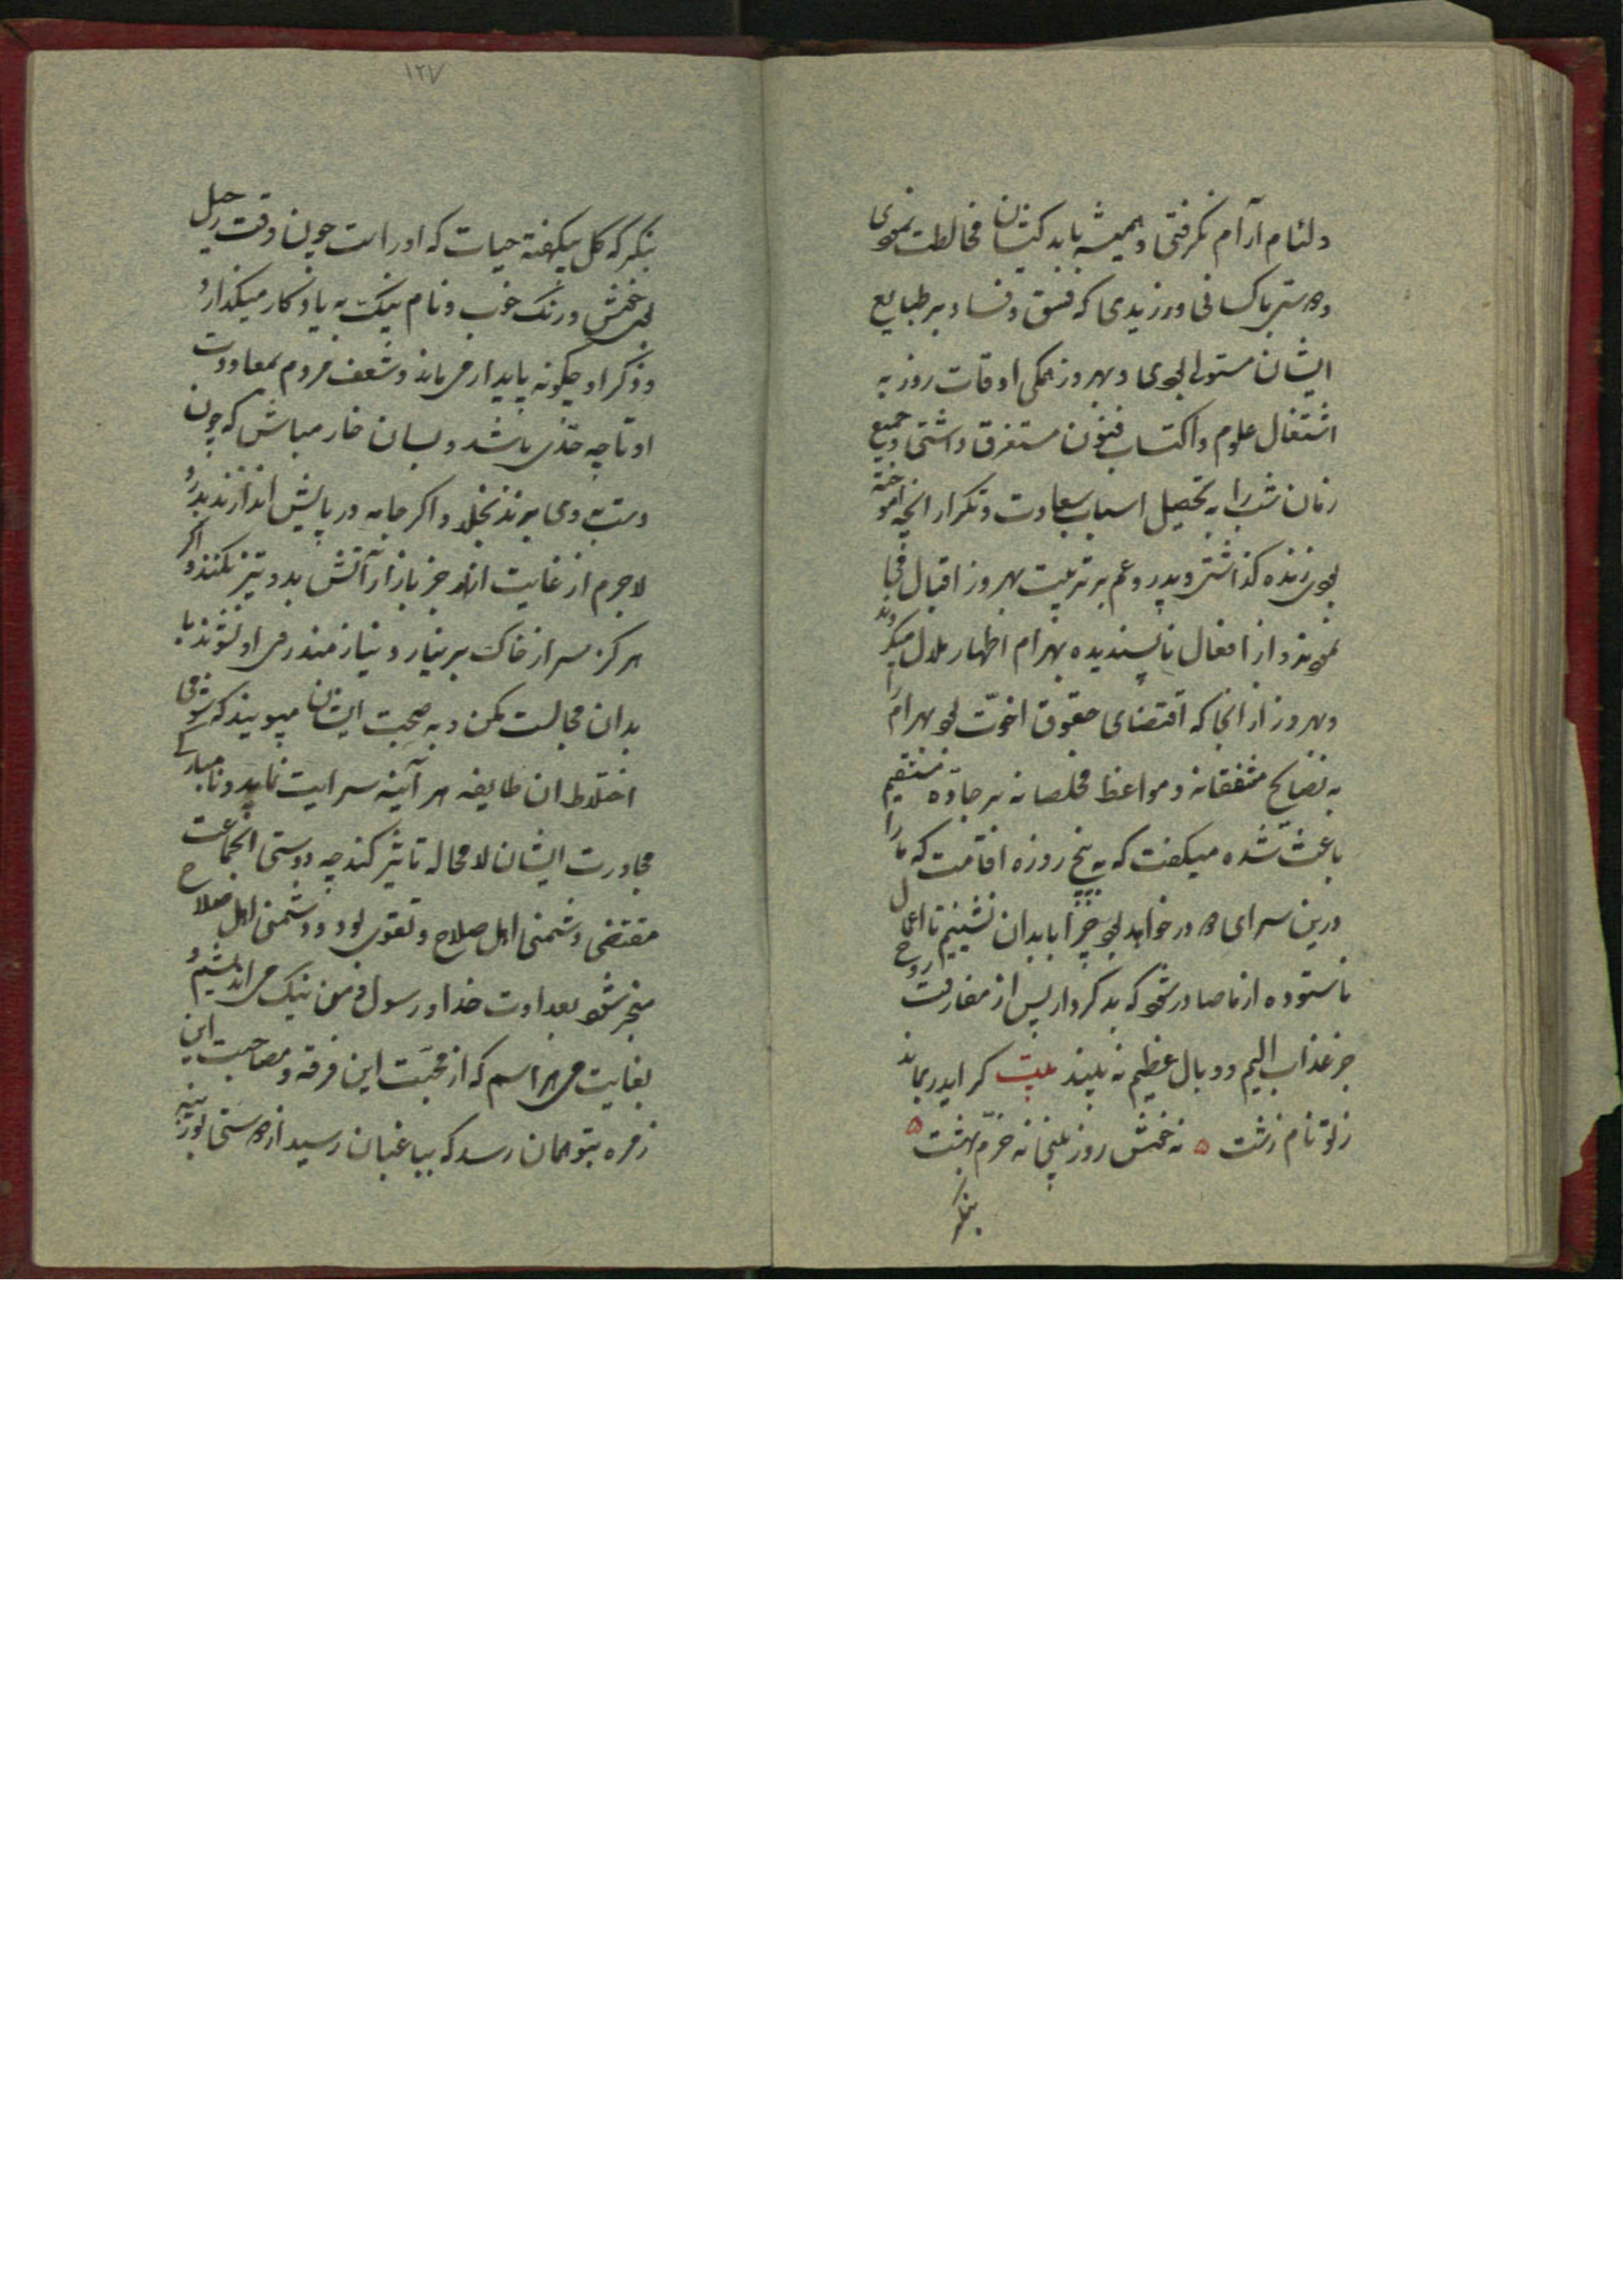 و لئام آرام نگرفتی و همیشه با بدکیشان مخالطت نمودی
و دوستی با کسانی ورزیدی که فسق و فساد بر طبایع
ایشان مستولی بودی و بهروز همگی اوقات روز به
اشتغال علوم و اکتساب فنون مستغرق داشتی و جمیع
زمان شب را به تحصیل اسباب سعادت و تکرار انچه آموخته
بودی زنده کذاشتی و پدر و عم بر تربیت بهروز اقبال
نمودند و از افعال ناپسندیده بهرام اظهار ملال میکردند
و بهروز از آنجا که اقتضای حقوق اخوّت بود بهرام را
به نصایح مشفقانه و مواعظ مخلصانه بر جادّه مستقیم
باعث شده میکفت که به پنج روزه اقامت که ما را
درین سرای دو در خواهد بود چرا با بدان نشینیم تا اعمال
ناستوده از ما صادر شود که بدکردار پس از مفارقت روح
جز عذاب الیم و وبال عظیم نه بیند بیت کر ایدر بماند
ز تو نام زشت ۵ نه خوش روز بینی نه خرّم بهشت ۵
بنکر
۱۲۷
بنکر که کل یکهفته حیات که او راست چون وقت رحیل
بوی خوش و رنک خوب و نام نیک به یادکار میکذارد
و ذکر او چکونه پایدار می‌ماند و شعف مردم بمعاودت
او تا چه حدّ می باشد و بسان خار مباش که چون
دست به وی برند بخلد و اکر جامه در پایش اندازند بدرد
لاجرم از غایت آزار جز بازار آتش بدو تیز نکنند و اکر
هرکز سر از خاک برنیارد نیازمند رمی او نشوند با
بدان مجالست مکن و به صحبت ایشان مپیوند که شومی
اختلاط ان طایفه هر آینه سرایت نماید و نامبارکی
مجاورت ایشان لامحاله تاثیر کند چه دوستی انجماعت
مقتضی دشمنی اهل صلاح و تقوی بود و دشمنی اهل صلاح
منجر شود بعداوت خدا و رسول و من نیک می اندیشم و
بغایت می هراسم که از محبّت این فرقه و مصاحبت این
زمره بتو همان رسد که بباغبان رسید از دوستی بوزینه